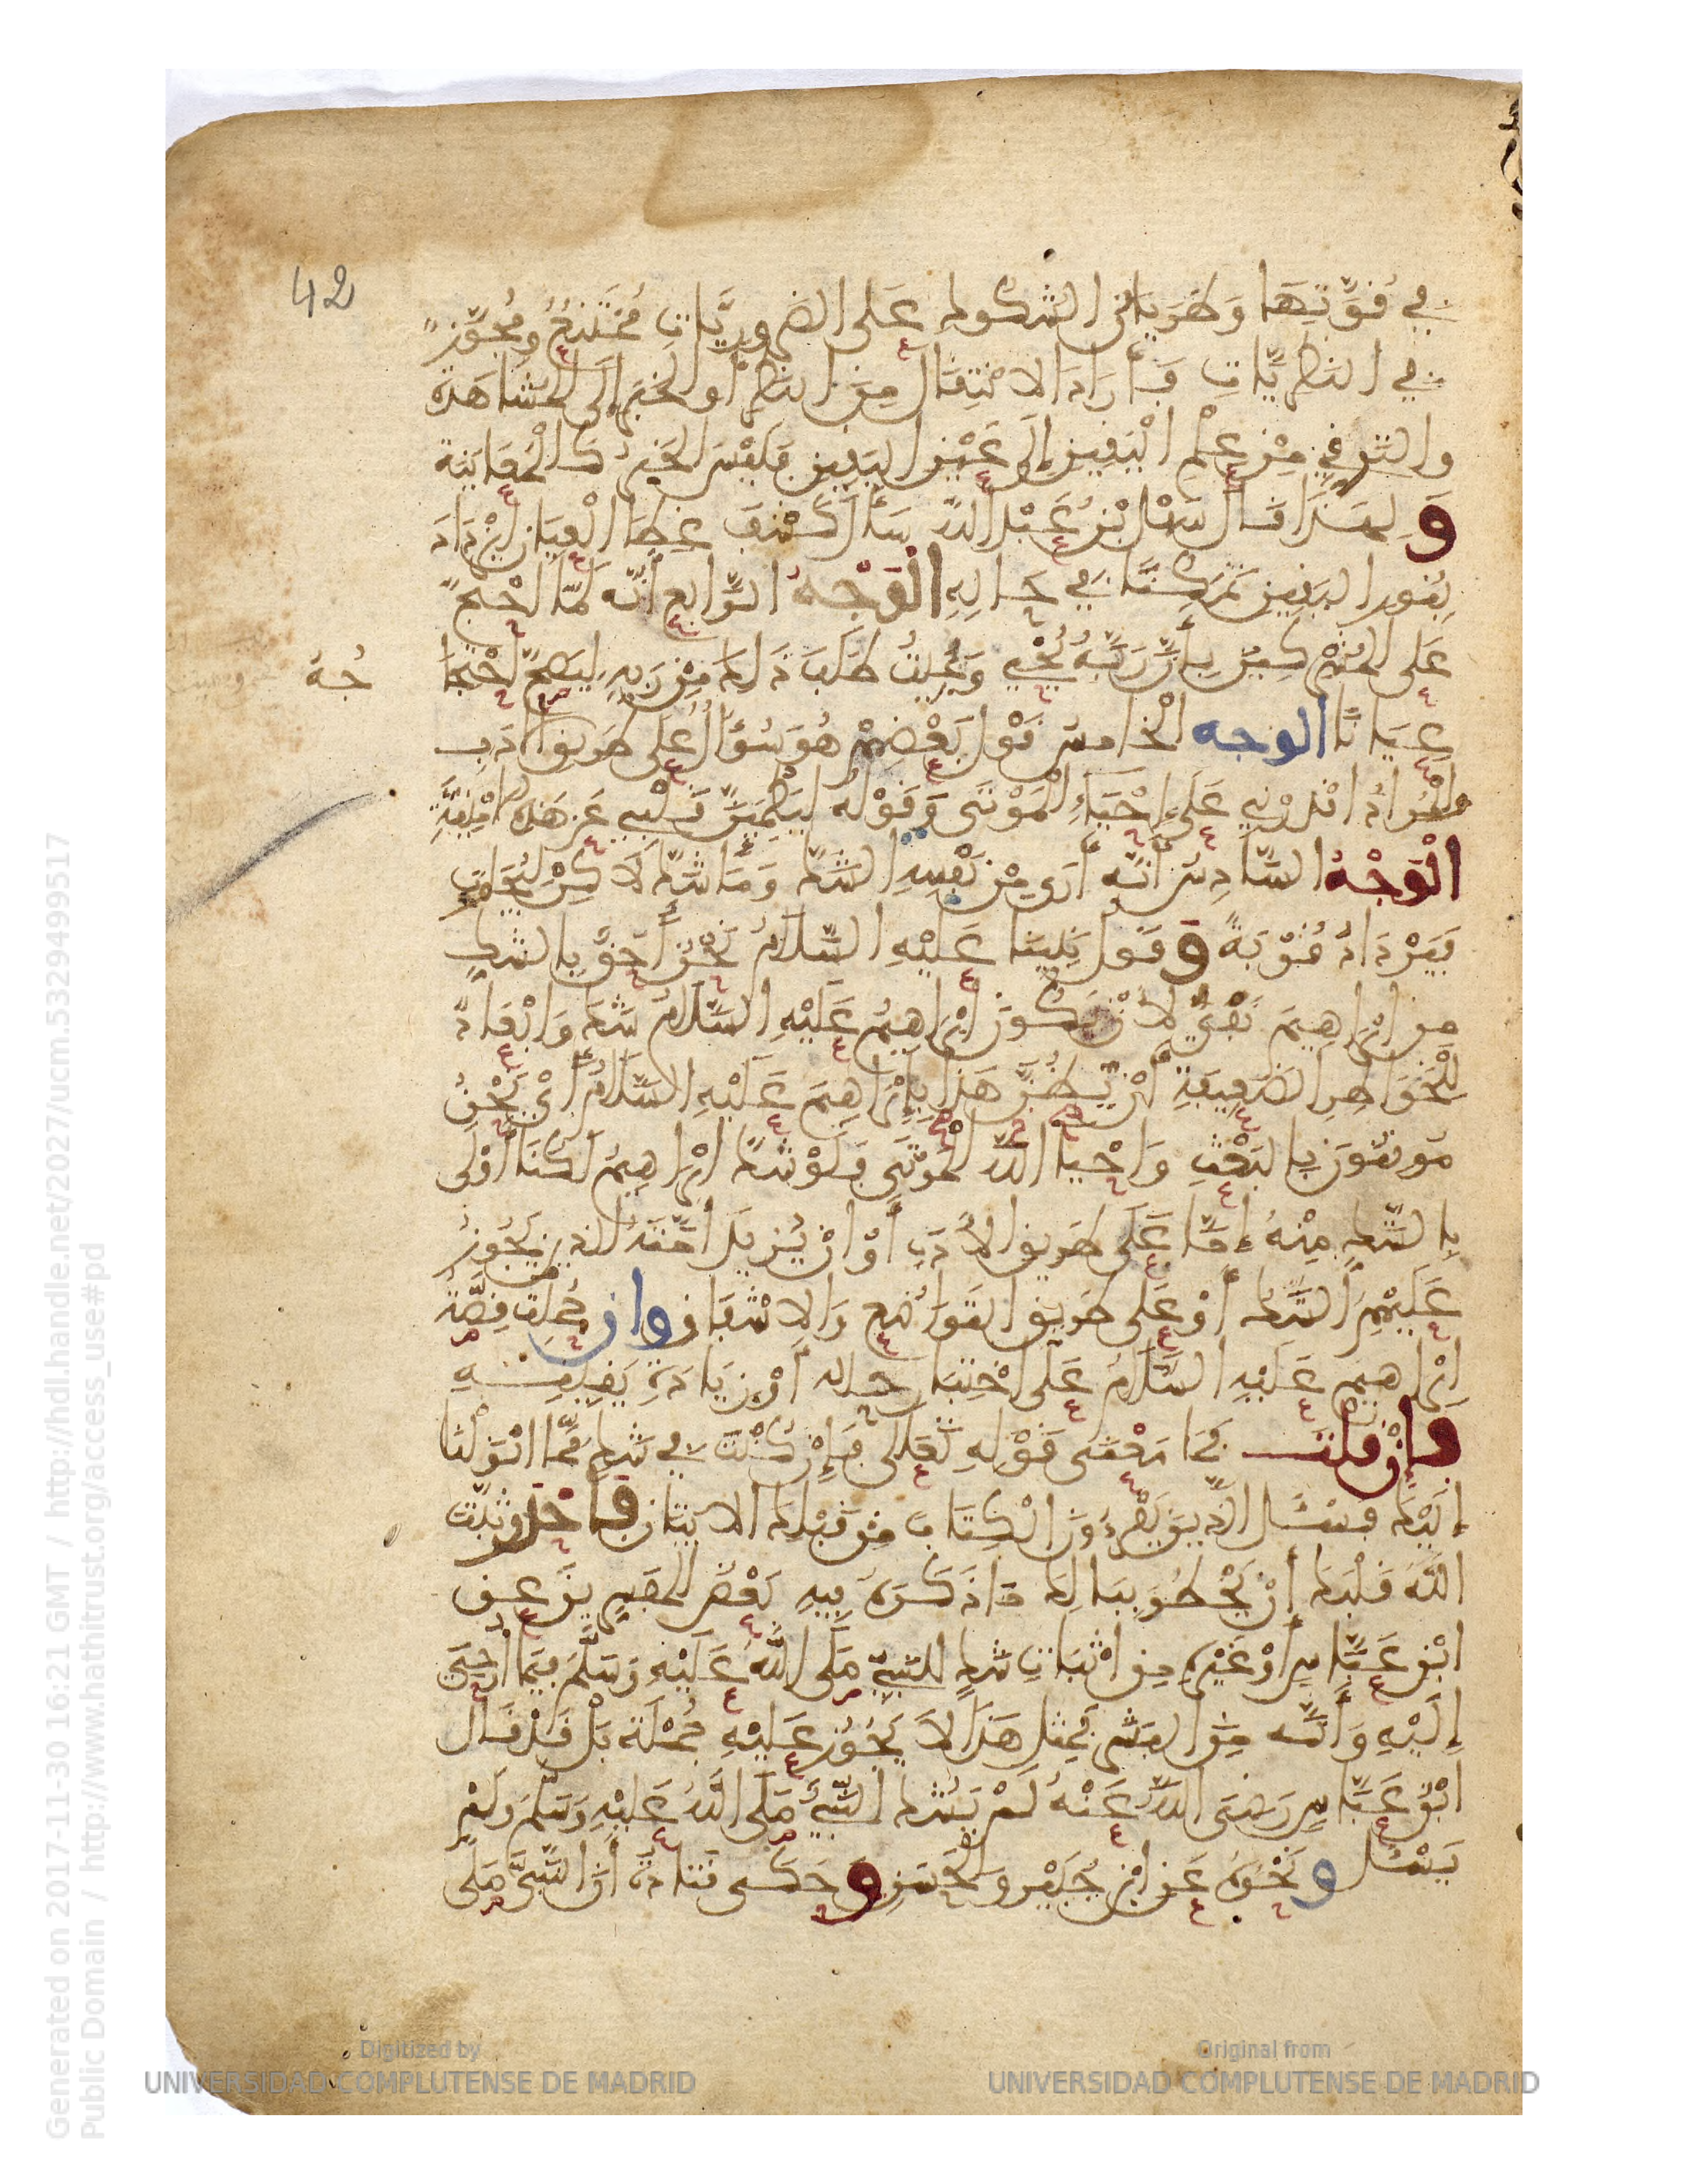 42
في قُوَّتِهَا وَطَرَيَانُ الشكوك عَلى الضروريَّاتِ مُمْتَنِعٌ ومُجَوَّزٌ
في النظريَّاتِ فَأَرَادَ الانْتِقَالَ مِنَ النظر أو الخبَرِ إلَى المشاهَدة
والترقي مِنْ عِلْمِ الْيَقِينِ إِلَى عَيْنِ اليَقِينِ فليْسَ الخبَرُ كَالْمُعَايَنة
وَلِهَذَا قَالَ سَهْلُ بْنُ عَبْدِ اللهِ سَأَلَ كَشْفَ غِطَا الْعِيَانِ لِيَزْدَادَ
بِنُورِ اليَقِينِ تَمَكُّنًا في حَالِهِ الْوَجْهُ الرَّابع أنَّه لَمَّا احْتجَّ
عَلَى المُشْرِكِينَ بِأَنَّ رَبَّهُ يُحْيِي وَيُمِيتُ طَلَبَ ذَلِكَ مِنْ رَبِهِ لِيَصِحَّ احْتِجَا
جُهُ
عِيَانًا الوجه الْخَامسُ قَوْل بَعْضِهِمْ هُوَ سُؤَالٌ عَلى طَرِيقِ الأدَبِ
والْمُرَادُ اقْدِرْنِي عَلَى إِحْيَاءِ الْمَوْتَى وَقَوْلُه لِيَطْمَئِنَّ قَلْبِي عَن هَذِهِ الامْنِيَّةِ
الْوَجْهُ السَّادِسُ أَنَّه أَرَى مِنْ نَفْسِهِ الشَّكَّ وَمَا شَكَّ لَاكِنْ لِيُجَاوَبَ
فَيَزْدَادَ قُرْبَةً وَقَوْل نَبِينَا عَلَيْهِ السَّلَامُ نَحْنُ أَحَقُّ بِالشكِّ
من إبْرَاهِيمَ نَفْيٌ لأَنْ يَكُونَ إبْرَاهِيمُ عَلَيْهِ السَّلَامُ شَكَّ وَإبْعَادٌ
لِلْخَوَاطِرِ الضَّعِيفَةِ أَنْ يُظَنَّ هَذَا بِإِبْرَاهِيمَ عَلَيْهِ السَّلَامُ أَيْ نَحْنُ
مُوقِنُونَ بِالبَعْثِ وَإحْيَا اللهِ المَوْتَى فَلَوْ شَكَّ إبْرَاهِيمُ لَكُنَّا أَوْلَى
بِالشَّكِّ مِنْهُ إِمَّا عَلَى طَرِيقِ الأَدَبِ أَوْ انْ يُرِيدَ أُمَّتَهُ الذِينَ يَجُوزُ
عَلَيْهِمِ الشَّكُّ أَوْ عَلَى طَرِيقِ التَّوَاضُعِ وَالاشْفَاقِ وان حُمِلَتْ قِصَّةُ
إبْرَاهِيمَ عَلَيْهِ السَّلَامُ عَلَى اخْتِبَارِ حَالِهِ أَوْ زِيَادَةِ يَقِينِهِ
فَإِنْ قُلْتَ فَمَا مَعْنَى قَوْلِهِ تَعَالَى فَإِنْ كُنْتَ في شَكٍّ مِّمَّا أَنْزَلْنَا
إِلَيْكَ فَسْئَلِ الَّذِينَ يَقْرَءُونَ الْكِتَابَ مِنْ قَبْلِكَ الايَتَانِ فَاحْذَرْ ثَبَّتَ
اللَّهُ قَلْبَكَ أَنْ يَخْطُرَ بِبَالِكَ مَا ذَكَرَهُ فِيهِ بَعْضُ المفَسِّرِينَ عن
ابْنِ عَبَّاسٍ أَوْ غَيْرِهِ مِنِ اثْبَاتِ شَكٍّ للنَّبِيِّ صَلَّى اللَّهُ عَلَيْهِ وَسَلَّمَ فِيمَا أُوحِيَ
إِلَيْهِ وَأَنَّه مِنَ البَشَرِ فَمِثْلُ هَذَا لاَ يَجُوزُ عَلَيْهِ جُمْلَةً بَلْ قَدْ قَالَ
ابْنُ عَبَّاسٍ رَضِيَ اللَّهُ عَنْهُ لَمْ يَشُكَّ النَّبِيُّ صَلَّى اللَّهُ عَلَيْهِ وَسَلَّمَ وَلَمْ
يَسْئَلْ وَنَحْوُهُ عَنِ ابْنِ جُبَيْرٍ وَالْحَسَنِ وَحَكَى قَتَادَةُ أَنَّ النَّبِيَّ صَلَّى
Generated on 2017-11-30 16:21 GMT / http://hdl.handle.net/2027/ucm.5329499517
Public Domain / http://www.hathitrust.org/access_use#pd
Digitized by
UNIVERSIDAD COMPLUTENSE DE MADRID
Original from
UNIVERSIDAD COMPLUTENSE DE MADRID